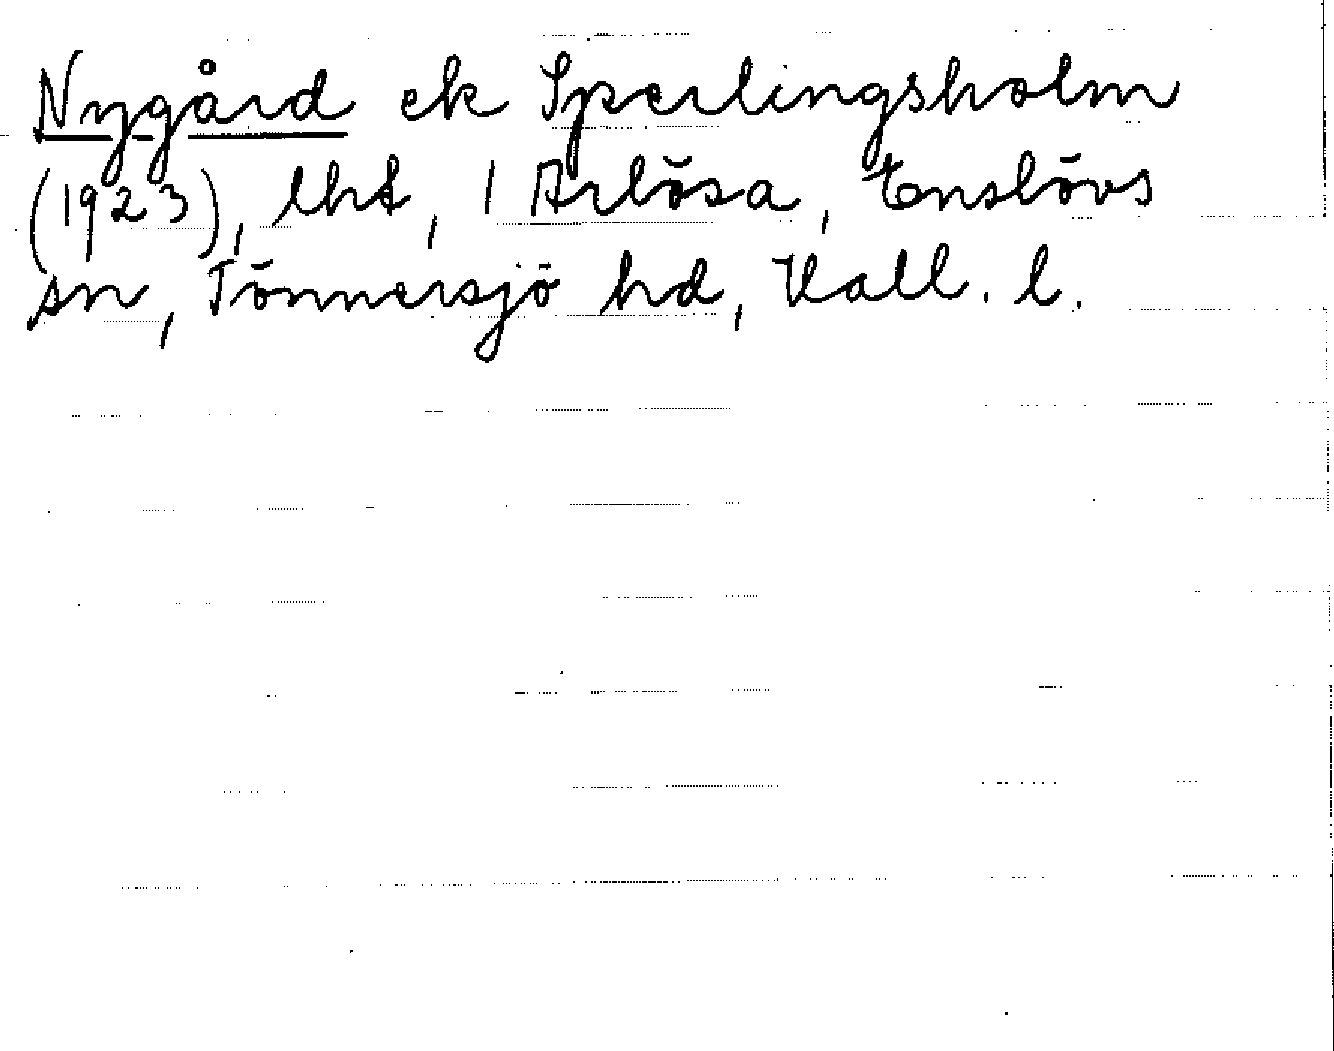 Nygård ek Sperlingsholm
(1923), lht, 1 Årlösa, Enslövs
sn, Tönnersjö hd, Hall. l.